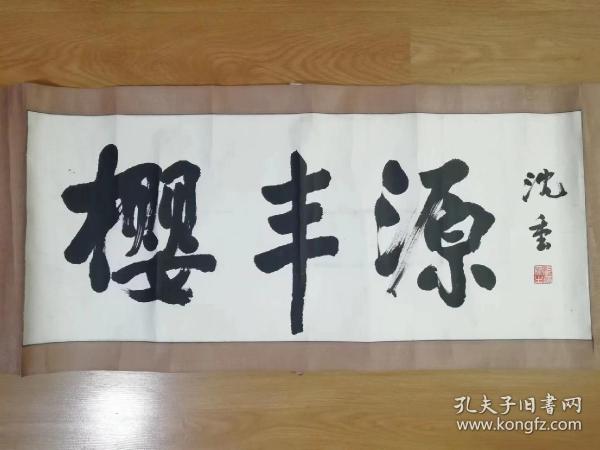 櫻丰源
沈重
孔夫子旧书网
www.kongfz.com